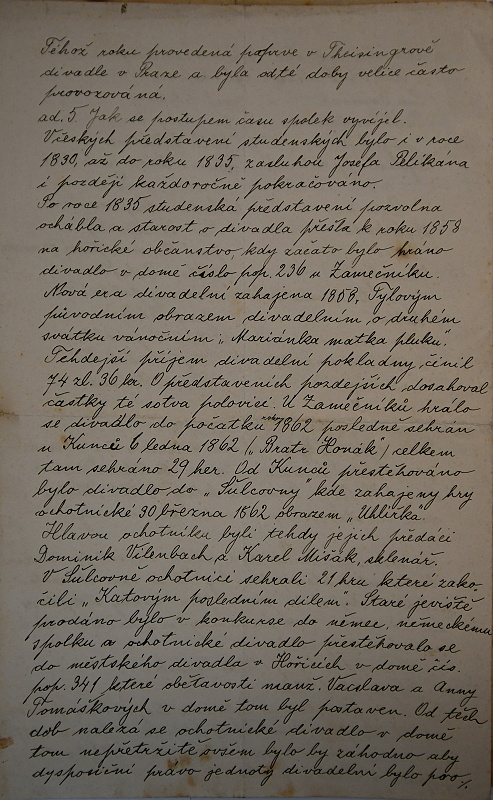 Téhož roku provedená poprve v Theisingrově
divadle v Praze a byla odté doby velice často
provozována.
ad. 5. Jak se postupem času spolek vyvíjel.
Včeských představení studenských bylo i v roce
1830, až do roku 1835, zasluhou Josefa Pelikána
i později každoročně pokračováno.
Po roce 1835 studenská představení pozvolna
ochábla a starost o divadla přešla k roku 1858
na hořické občanstvo, kdy začato bylo hráno
divadlo v domě číslo pop. 236 u Zámečníku.
Nová era divadelní zahajena 1858, Tylovým
původním obrazem divadelním, o druhém
svátku vánočním: „Mariánka matka pluku".
Tehdejší příjem divadelní pokladny, činil
74 zl. 36 kr. O představeních pozdejších dosahoval
částky té sotva polovici. U Zámečníků hrálo
se divadlo do počátku roku 1862 posledně sehrán
u Kunců 6 ledna 1862 („Bratr Honák") celkem
tam sehráno 29 her. Od Kunců přestěhováno
bylo divadlo, do „Šulcovny" kde zahajeny hry
ochotnické 30 března 1862 obrazem „Uhlířka.
Hlavou ochotníku byli tehdy jejich předáci
Dominik Vilenbach a Karel Mišák, sklenář.
V Šulcovně ochotnici sehrali 21 hru které zako-
čili „Katovým posledním dílem". Staré jeviště
prodáno bylo v konkurse do němec. německému
spolku a ochotnické divadlo přestěhovalo se
do městského divadla v Hořicích v domě čís.
pop. 341 které obětavosti manž. Vaclava a Anny
Tomáškových v domě tom byl postaven. Od těch
dob nalezá se ochotnické divadlo v domě
tom nepřetržitě ovšem bylo by záhodno aby
dysposiční právo jednoty divadelní bylo